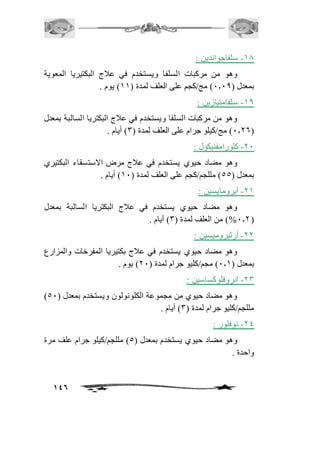 ١٨- سلفاجواندين :
وهو من مركبات السلفا ويستخدم في علاج البكتيريا المعوية
بمعدل (٠,٠٩) مج/كجم على العلف لمدة (١١) يوم .
١٩- سلفامتيازين :
وهو من مركبات السلفا ويستخدم في علاج البكتريا السالبة بمعدل
(٠.٢٦) مج/كيلو جرام على العلف لمدة (٣) أيام .
٢٠- كلورامفنيكول :
وهو مضاد حيوي يستخدم في علاج مرض الاستسقاء البكتيري
بمعدل (٥٥) مللجم/كجم على العلف لمدة (١٠) أيام .
٢١- أبرومايسين :
وهو مضاد حيوي يستخدم في علاج البكتريا السالبة بمعدل
(٠.٢%) من العلف لمدة (٣) أيام .
٢٢- أرثيروميسين :
وهو مضاد حيوي يستخدم في علاج بكتيريا المفرخات والمزارع
بمعدل (٠.١) مجم/كليو جرام لمدة (٢٠) يوم .
٢٣- انروفلوكساسين :
وهو مضاد حيوي من مجموعة الكلونولون ويستخدم بمعدل (٥٠)
مللجم/كليو جرام لمدة (٣) أيام .
٢٤- نوفلور :
وهو مضاد حيوي يستخدم بمعدل (٥) مللجم/كيلو جرام علف مرة
واحدة .
١٤٦